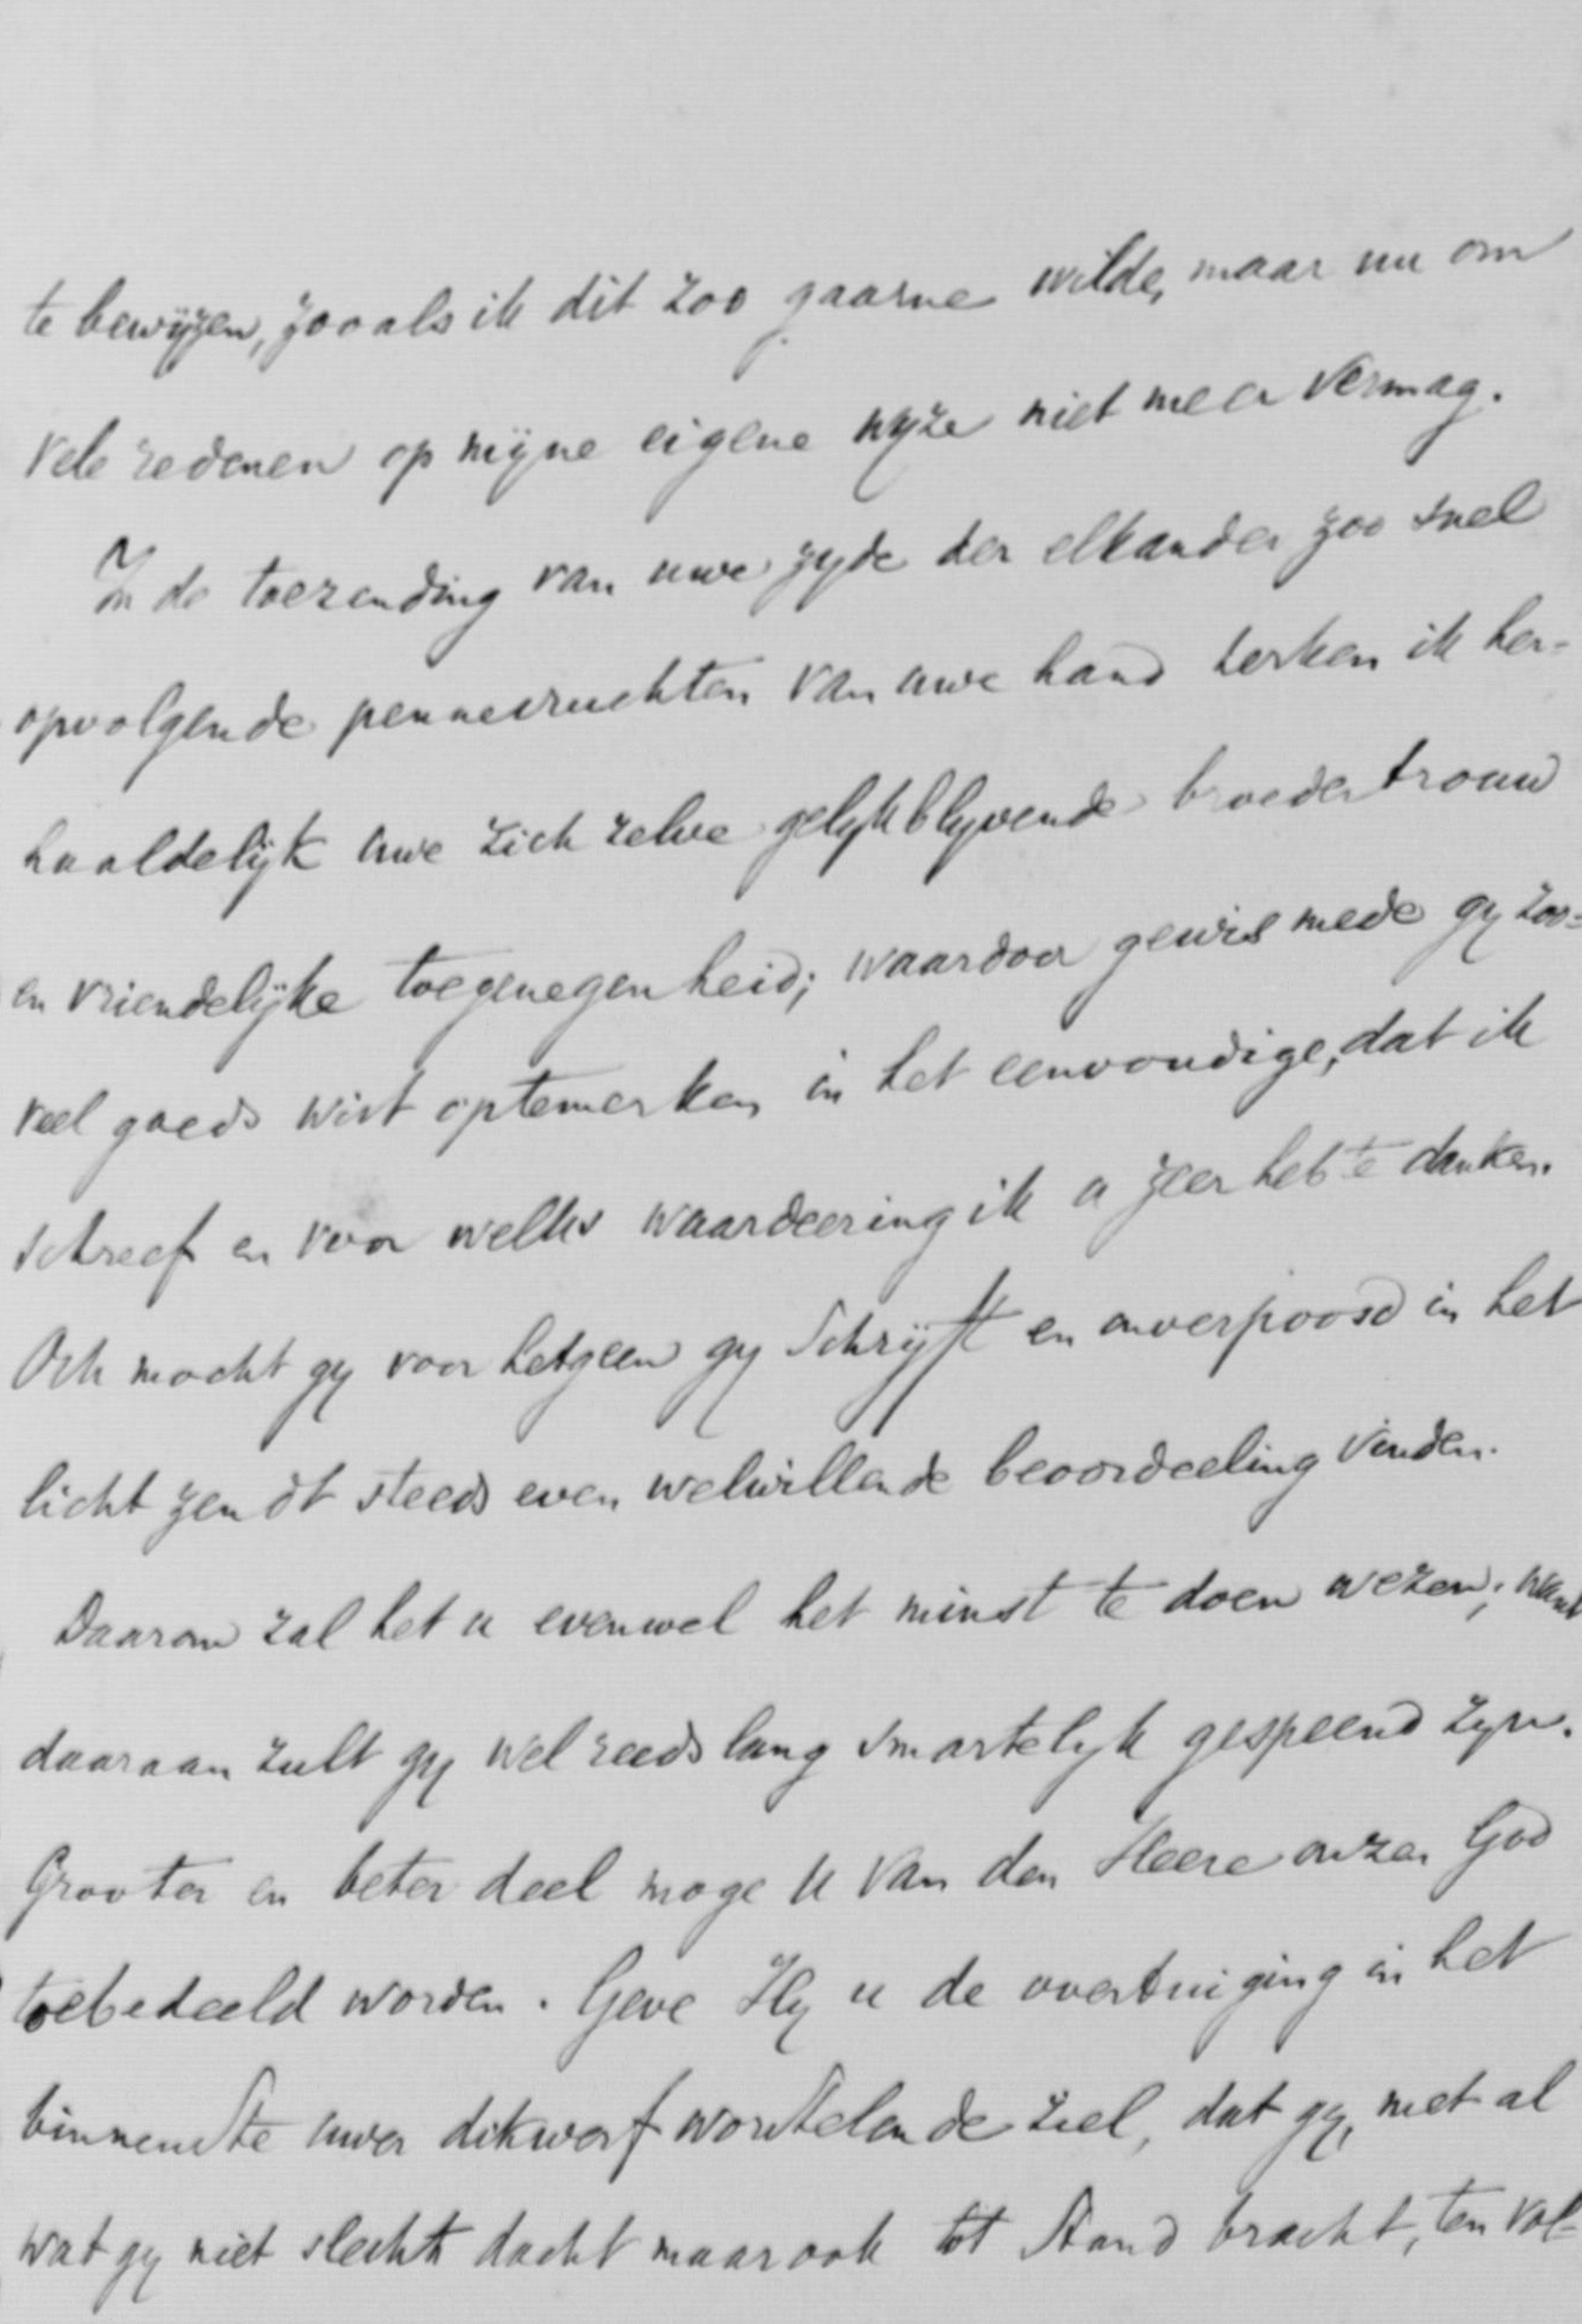 te bewijzen, zooals ik dit zoo gaarne wilde, maar nu om
vele redenen op mijne eigene wyze niet meer vermag.
In de toezending van uwe zyde der elkander zoo snel
opvolgende pennevruchten van uwe hand herken ik her-
haaldelijk uwe zich zelve gelykblyvende broedertrouw
en vriendelijke toegenegenheid; waardoor gewis mede gy zoo=
veel goeds wist optemerken in het eenvoudige, dat ik
schreef en voor welks waardeering ik u zeer heb te danken.
Och mocht gy voor hetgeen gy schrijft en onverpoosd in het
licht zendt steeds even welwillende beoordeeling vinden.
Daarom zal het u evenwel het minst te doen wezen; want
daaraan zult gy wel reeds lang smartelyk gespeend zyn.
Grooter en beter deel moge u van den Heere onzen God
toebedeeld worden. Geve Hy u de overtuiging in het
binnenste uwer dikwerf worstelende ziel, dat gy, met al
wat gy niet slechts dacht maar ook tot stand bracht, ten vol-